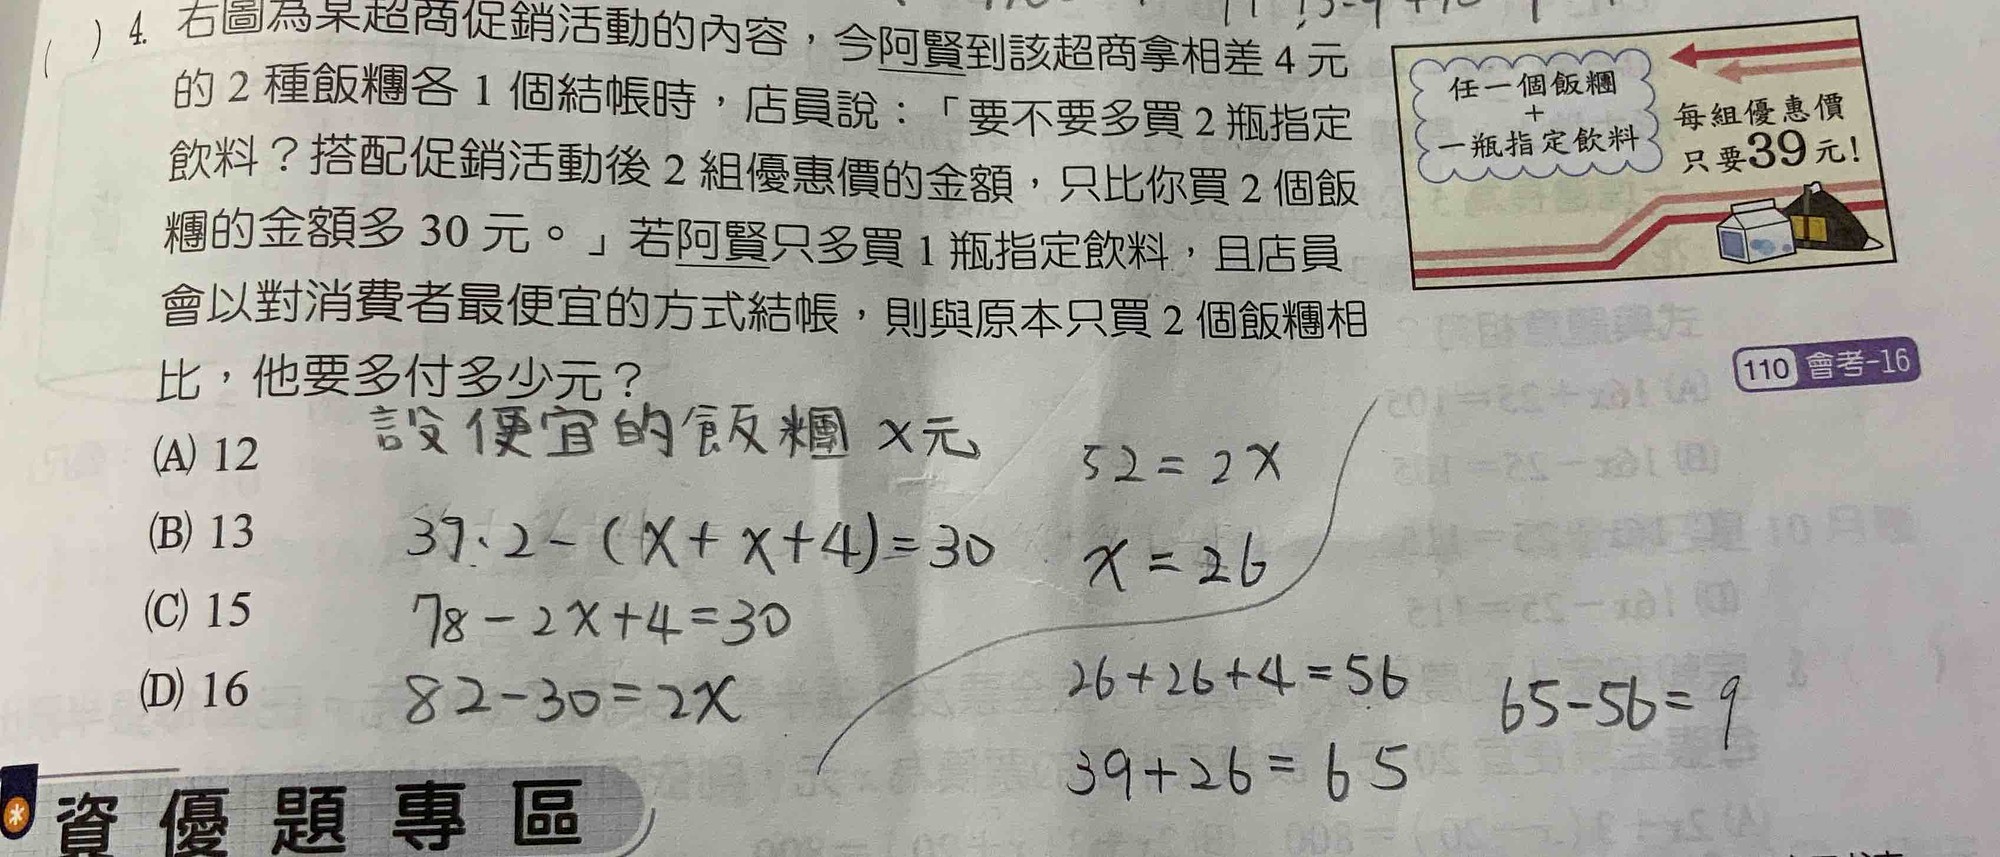 ( ) 4. 右圖為某超商促銷活動的內容，今阿賢到該超商拿相差 4 元
的 2 種飯糰各 1 個結帳時，店員說：「要不要多買 2 瓶指定
飲料？搭配促銷活動後 2 組優惠價的金額，只比你買 2 個飯
糰的金額多 30 元。」若阿賢只多買 1 瓶指定飲料，且店員
會以對消費者最便宜的方式結帳，則與原本只買 2 個飯糰相
比，他要多付多少元？
任一個飯糰
+
一瓶指定飲料
每組優惠價
只要39元!
110 會考-16
(A) 12
(B) 13
(C) 15
(D) 16
設便宜的飯糰 x元
39·2-(x+x+4)=30
78-2x+4=30
82-30=2x
52=2x
x=26
26+26+4=56
39+26=65
65-56=9
資優題專區